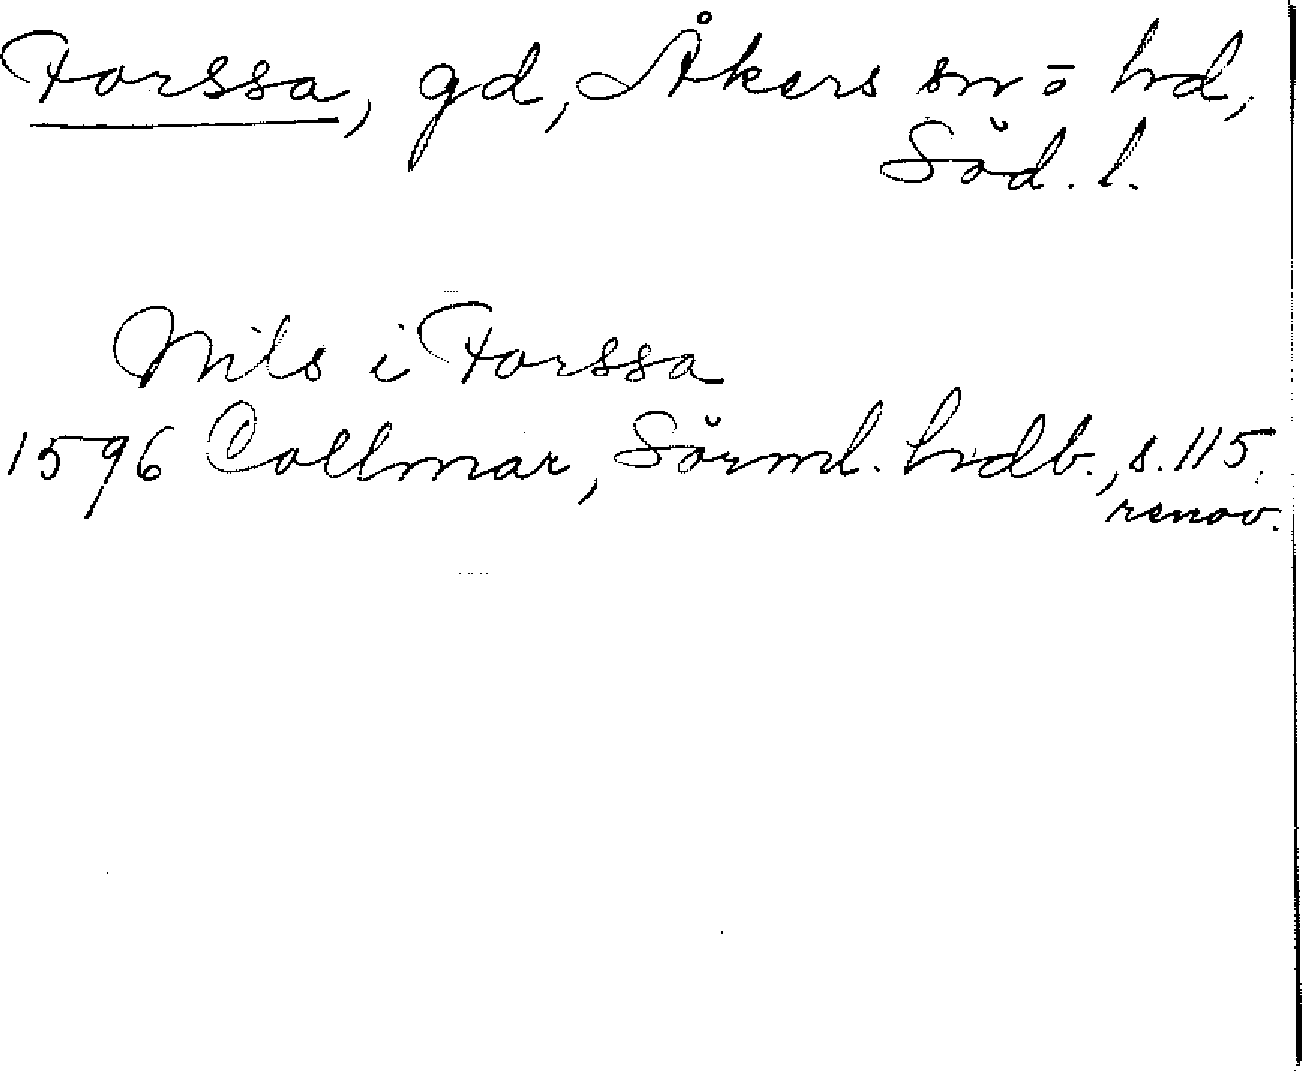 Forssa, gd, Åkers sn o hd,
Söd. l.
Nils i Forssa
1596 Collmar, Sörml. hdb., s. 115.
renov.